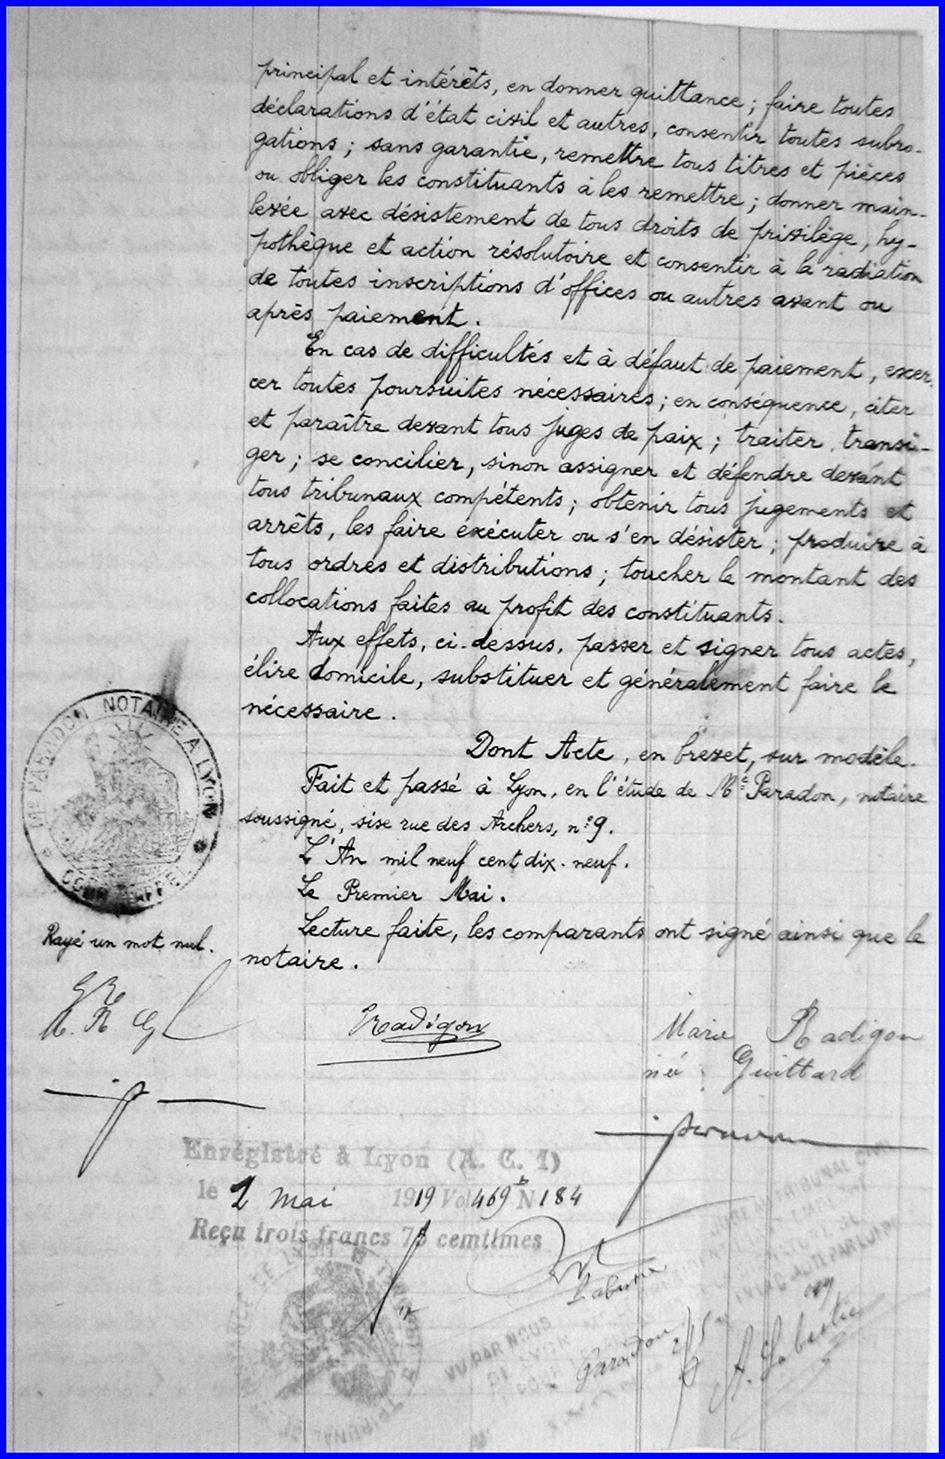 principal et intérêts, en donner quittance ; faire toutes
déclarations d'état civil et autres, consentir toutes subro-
gations ; sans garantie, remettre tous titres et pièces
ou obliger les constituants à les remettre ; donner main-
levée avec désistement de tous droits de privilège, hy-
pothèque et action résolutoire et consentir à la radiation
de toutes inscriptions d'offices ou autres avant ou
après paiement.
En cas de difficultés et à défaut de paiement, exer-
cer toutes poursuites nécessaires ; en conséquence, citer
et paraître devant tous juges de paix ; traiter, transi-
ger ; se concilier, sinon assigner et défendre devant
tous tribunaux compétents ; obtenir tous jugements et
arrêts, les faire exécuter ou s'en désister ; produire à
tous ordres et distributions ; toucher le montant des
collocations faites au profit des constituants.
Aux effets, ci-dessus, passer et signer tous actes,
élire domicile, substituer et généralement faire le
nécessaire.
Dont Acte, en brevet, sur modèle.
Fait et passé à Lyon, en l'étude de Me Paradon, notaire
soussigné, sise rue des Archers, n° 9.
L'An mil neuf cent dix-neuf.
Le Premier Mai.
Lecture faite, les comparants ont signé ainsi que le
notaire.
PARADON NOTAIRE A LYON
COUR D'APPEL
Rayé un mot nul.
M. R
Radigon
Marie Radigon
née Guittard
Enrégistré à Lyon (A. C. 1)
le 2 mai 1919 Vol 469 N 184
Reçu trois francs 75 centimes
VU PAR NOUS
DE LYON
Paradon